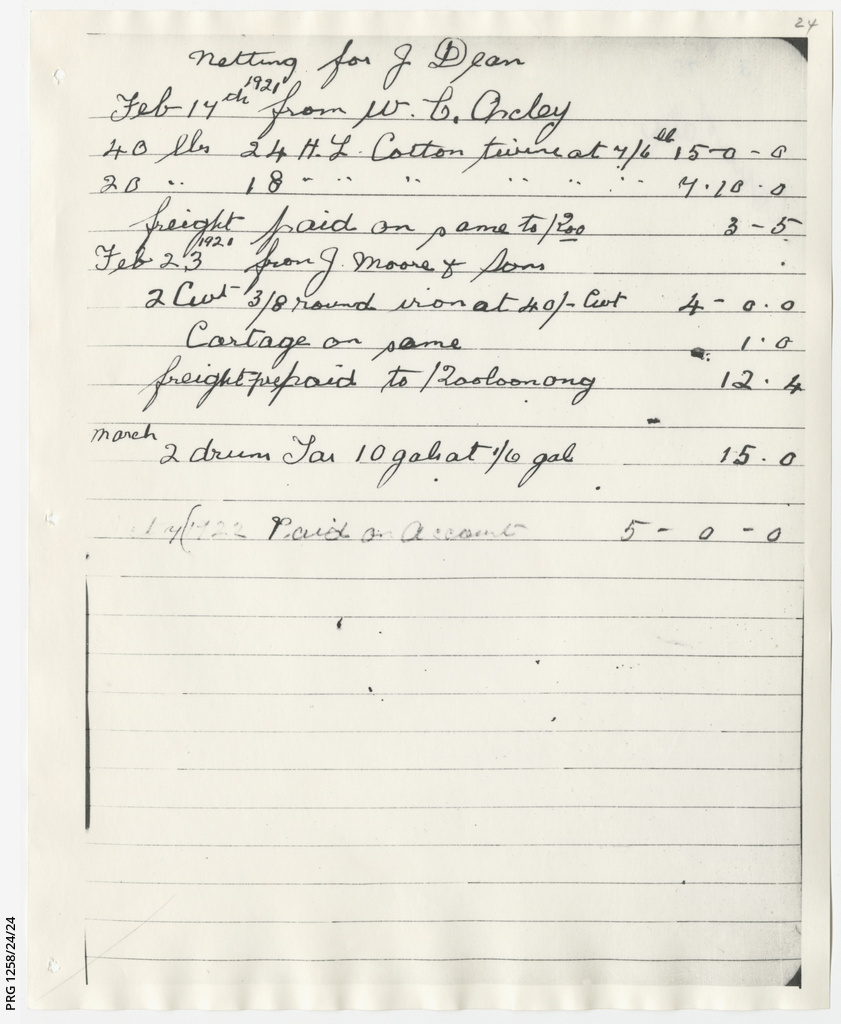 24
Netting for J Dean
Feb 14th 1921 from W. C.
40 lbs 24 H. L. Cotton twine at 7/6 lb 15-0-0
20 " 18 " " " " " 7.10.0
freight paid on same to 3-5
Feb 23 1921 from J. Moore & Sons
2 Cwt 3/8 round iron at 40/- Cwt 4-0.0
Cartage on same 1.0
freight prepaid to Rooloonong 12.4
march
2 drum Tar 10 gals at 1/6 gal 15.0
1922 Paid on Account 5-0-0
PRG 1258/24/24